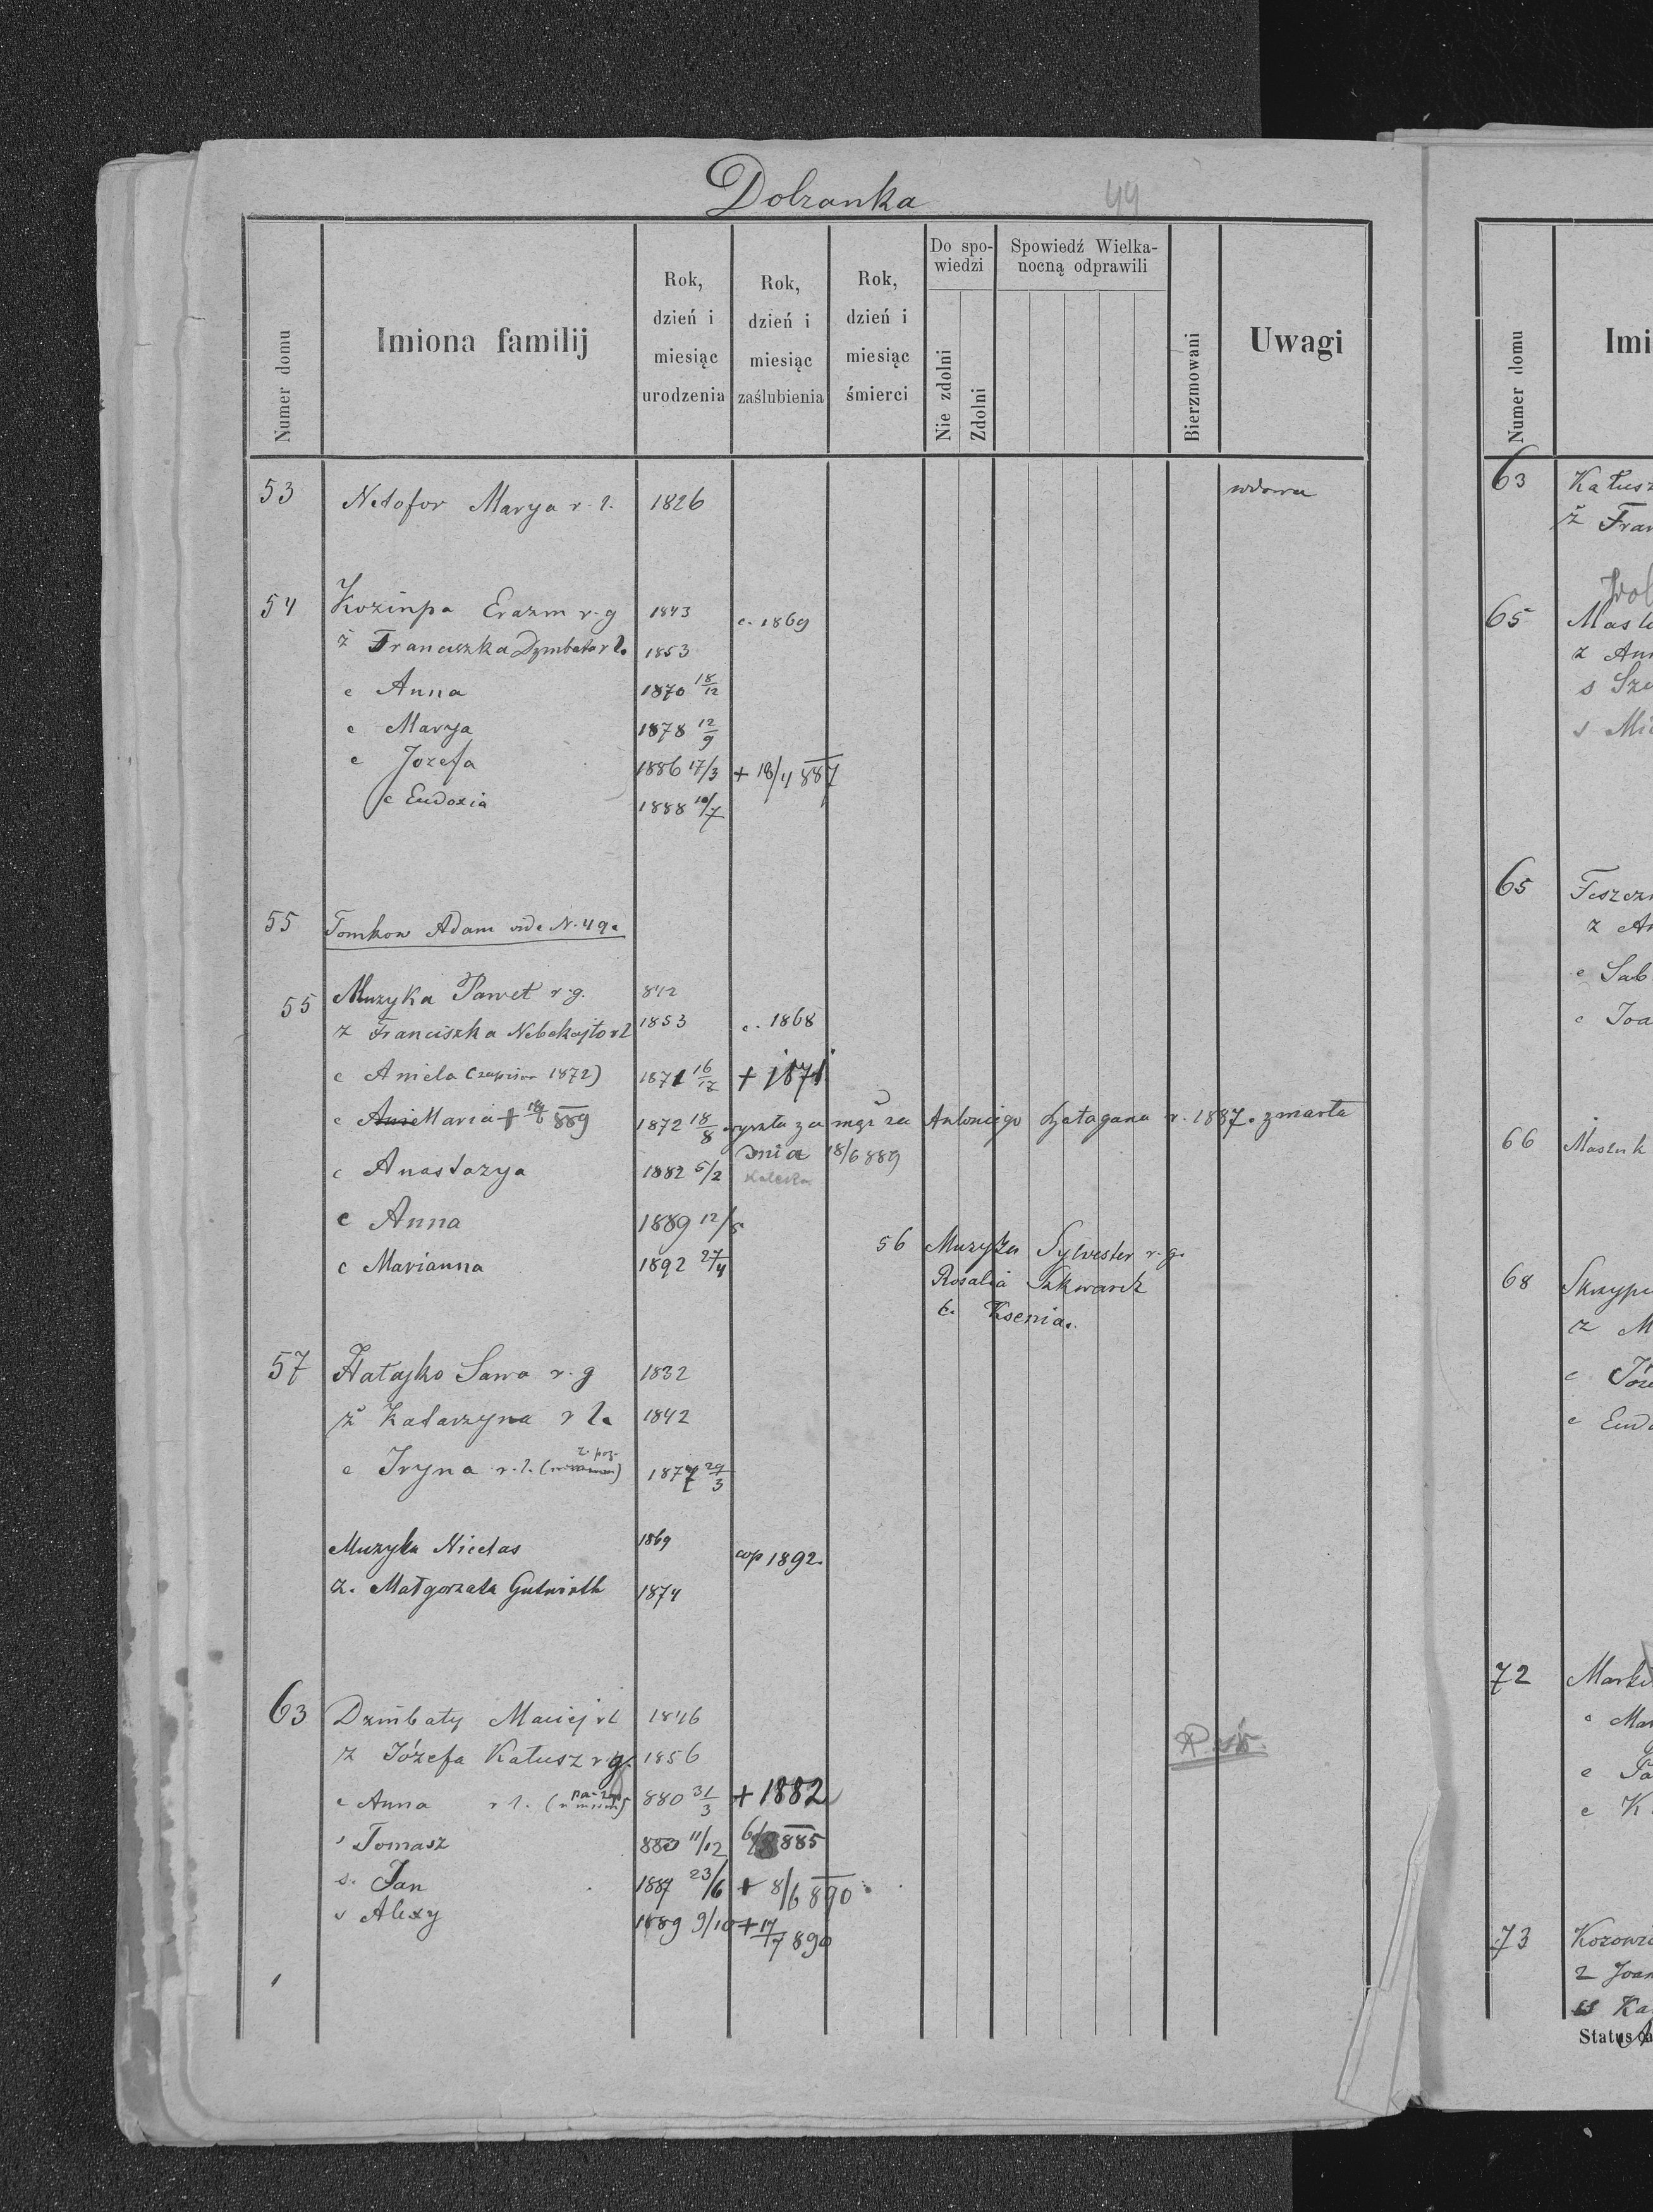 Dolzanka 49
Numer domu
Imiona familij
Rok, dzień i miesiąc urodzenia
Rok, dzień i miesiąc zaślubienia
Rok, dzień i miesiąc śmierci
Do spowiedzi
Nie zdolni
Zdolni
Spowiedź Wielkanocną odprawili
Bierzmowani
Uwagi
53 Netofor Marya r. l. 1826 wdowa
54 Kozinpa Erazm r. g 1843 c. 1869
ż Franciszka Dzmbata r l. 1853
c Anna 1870 18/12
c Marya 1878 12/9
c Jozefa 1886 17/3 + 18/4 887
c Eudoxia 1888 10/7
55 Tomkow Adam vide N. 49.
55 Muzyka Paweł r. g. 842
ż Franciszka Nebokajto r l 1853 c. 1868
c Aniela 1872) 1871 16/12 + 1871
c Maria + 18/6 889 1872 18/8 wyszła za mąż za Antoniego Hałagana r. 1887. zmarła
dnia 18/6 889
c Anastazya 1882 5/2 Kaleka
c Anna 1889 12/5
c Marianna 1892 27/4
56 Muzyka Sylvester r. g.
Rosalia
c. Ksenia.
57 Hałajko Sawa r. g 1832
ż Katarzyna r l. 1842
c Iryna r. l. 1877 29/3
Muzyka Nicetas 1869 cop 1892.
ż. Małgorzata Gutwirth 1874
63 Dzmbaty Maciej r l 1846
ż Józefa Kałusz r g. 1856
c Anna r l. 880 31/3 + 1882
s Tomasz 880 11/12 885
s. Jan 1887 23/6 + 8/6 890
s Alexy 1889 9/10 + 17/7 890
Numer domu
Imi
63 Kałusz
ż Fran
65 Masl
ż An
s Sze
s Mi
65 Feszcz
ż A
c Sab
c Joa
66 Masluk
68 Skrzyp
ż M
c Józe
c Eud
72 Mark
c Mar
c Pa
c K
73 Kozowi
ż Joan
s Ka
Status a